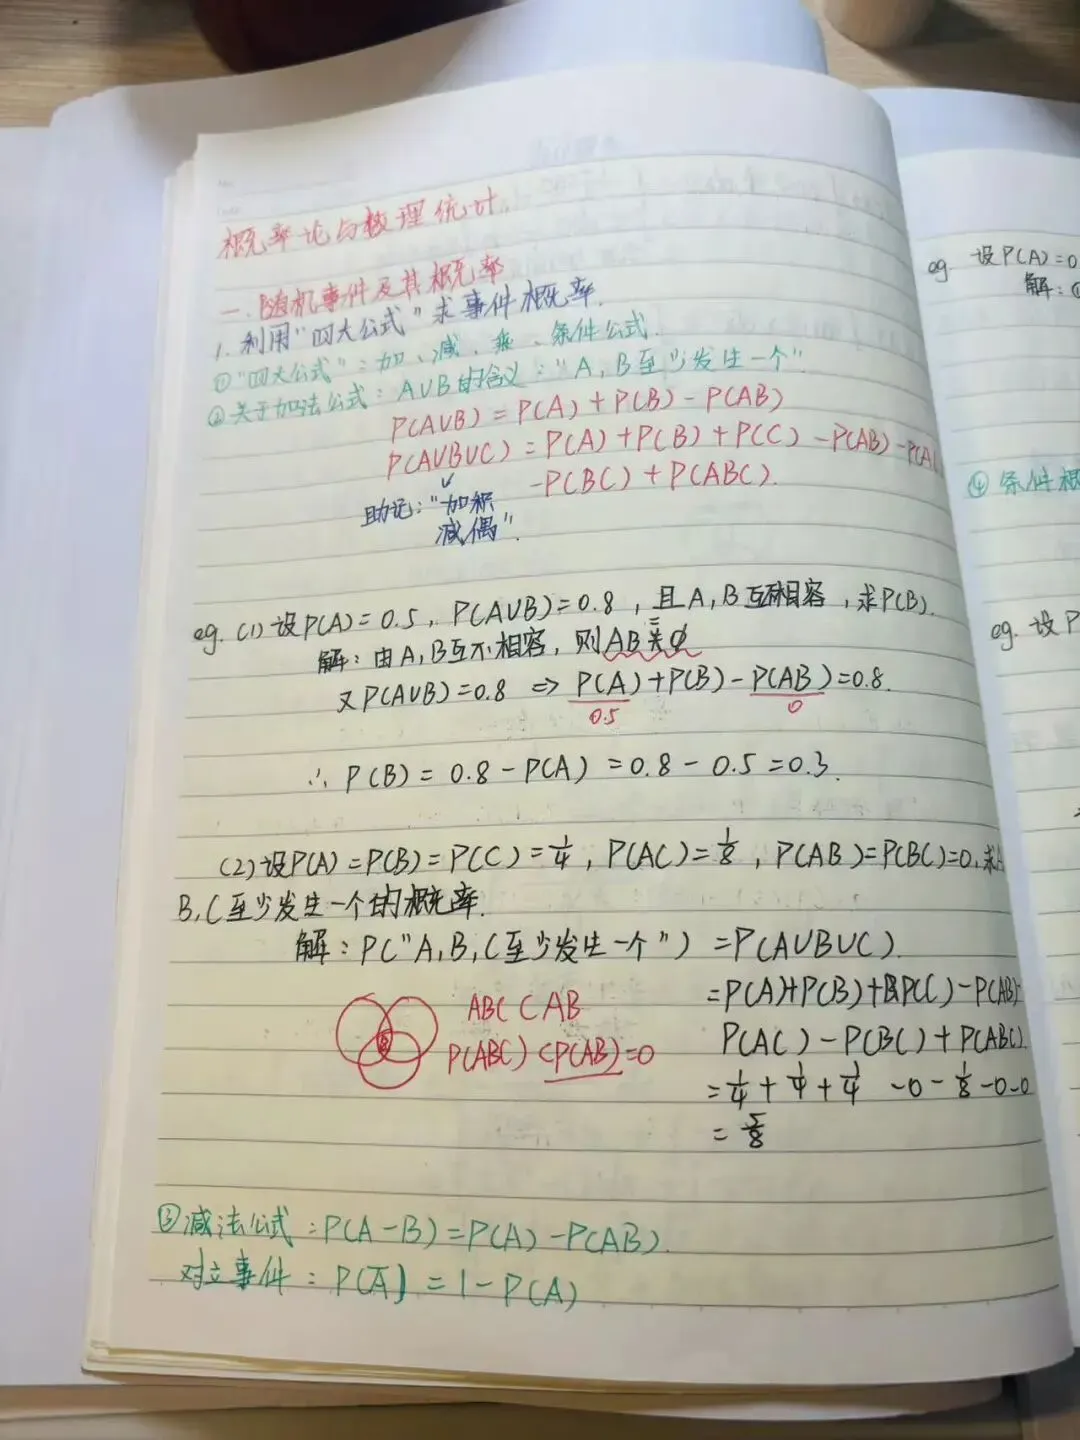 概率论与数理统计.
一.随机事件及其概率
1.利用"四大公式"求事件概率.
①"四大公式":加、减、乘、条件公式.
②关于加法公式:A∪B的含义:"A,B至少发生一个"
P(A∪B)=P(A)+P(B)-P(AB)
P(A∪B∪C)=P(A)+P(B)+P(C)-P(AB)-P(A
-P(BC)+P(ABC).
助记:"加积
减偶".
eg. (1)设P(A)=0.5, P(A∪B)=0.8,且A,B互相容,求P(B).
解:由A,B互不相容,则AB=Φ
又P(A∪B)=0.8 ⇒ P(A)+P(B)-P(AB)=0.8.
0.5 0
∴ P(B)=0.8-P(A)=0.8-0.5=0.3.
(2)设P(A)=P(B)=P(C)=1/4, P(AC)=1/8, P(AB)=P(BC)=0.求
B,C至少发生一个的概率.
解:P("A,B,C至少发生一个")=P(A∪B∪C).
=P(A)+P(B)+P(C)-P(AB)-
P(AC)-P(BC)+P(ABC).
=1/4+1/4+1/4-0-1/8-0-0
=5/8
ABC⊂AB
P(ABC)<P(AB)=0
③减法公式:P(A-B)=P(A)-P(AB).
对立事件:P(A̅)=1-P(A)
eg. 设P(A)=0
解:①
④条件概
eg. 设P